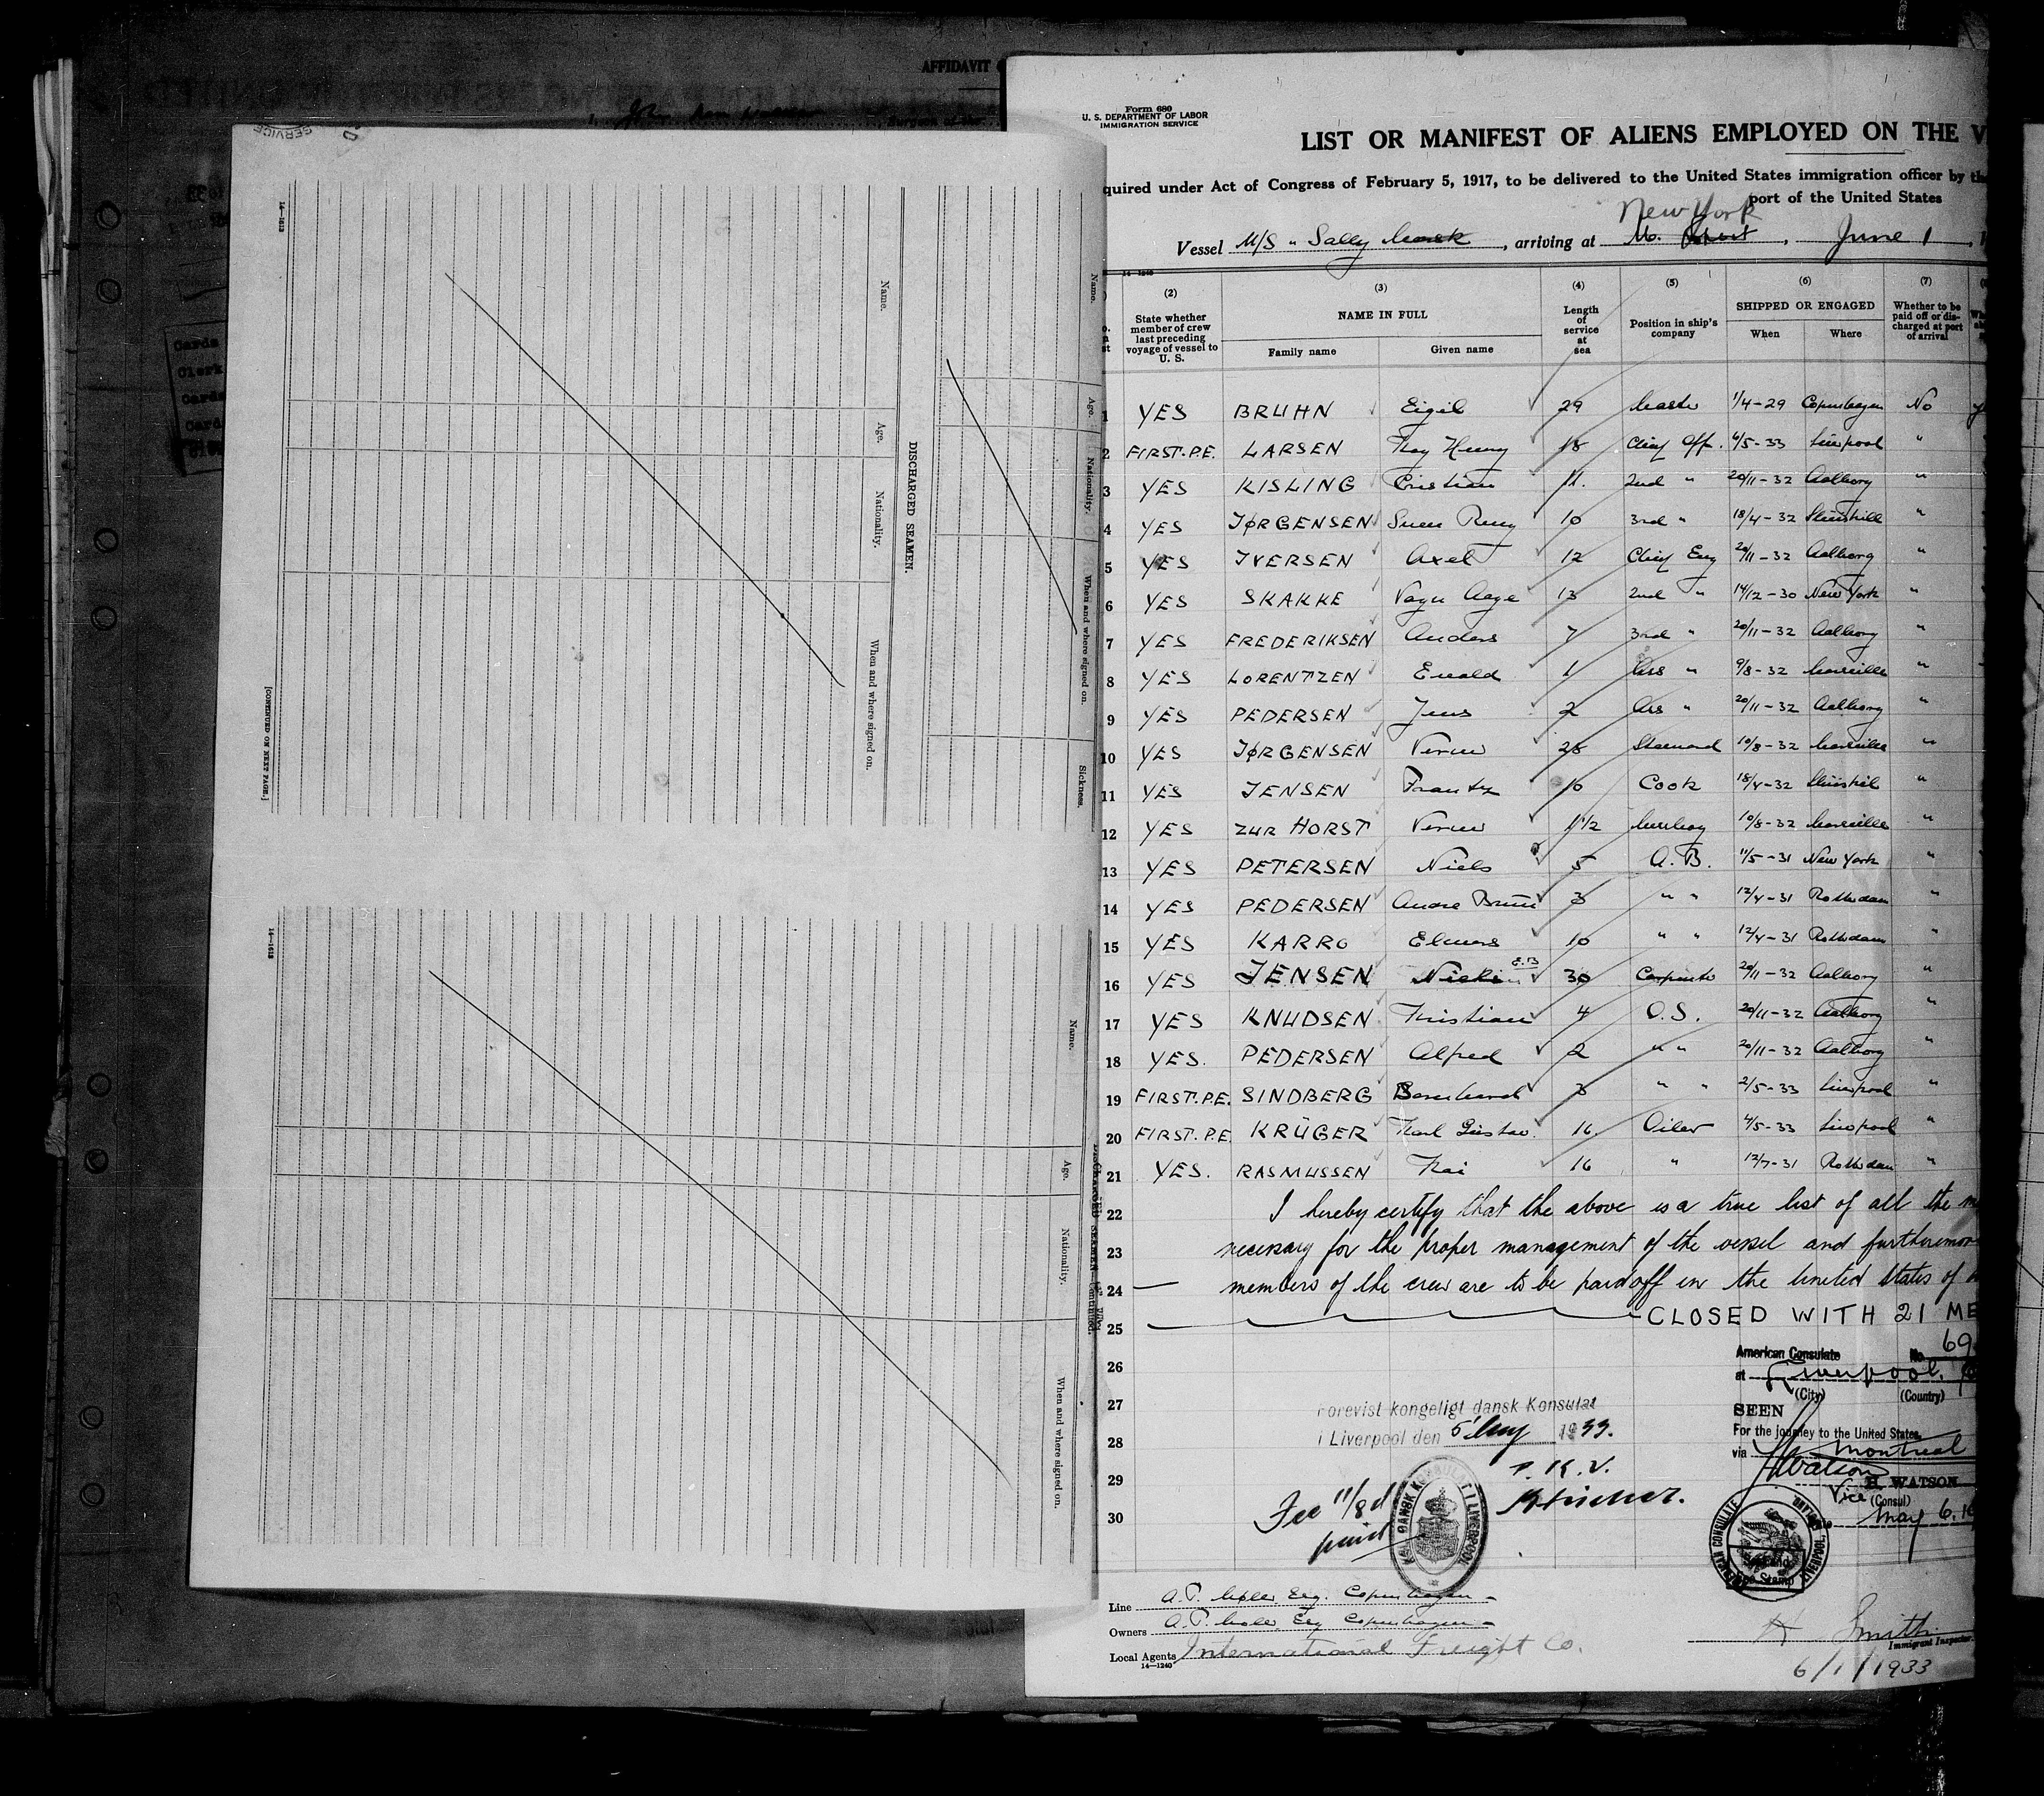 AFFIDAVIT
SERVICE
14—1613
Name.
Age.
Nationality.
When and where signed on.
DISCHARGED SEAMEN.
Name.
Age.
Nationality.
When and where signed on.
Sickness.
[CONTINUED ON NEXT PAGE.]
14—1613
Name.
Age.
Nationality.
When and where signed on.
Form 680
U. S. DEPARTMENT OF LABOR
IMMIGRATION SERVICE
LIST OR MANIFEST OF ALIENS EMPLOYED ON THE V
quired under Act of Congress of February 5, 1917, to be delivered to the United States immigration officer by the
port of the United States
New York
Vessel M/S "Sally , arriving at , June 1 , 1
14—1240
(2) (3) (4) (5) (6) (7)
State whether member of crew last preceding voyage of vessel to U. S.
NAME IN FULL
Family name Given name
Length of service at sea
Position in ship's company
SHIPPED OR ENGAGED
When Where
Whether to be paid off or discharged at port of arrival
1 YES BRUHN Eigil 29 Master 1/4-29 Copenhagen No
2 FIRST.P.E. LARSEN Kay Henry 18 Chief Off. 6/5-33 Liverpool "
3 YES KISLING Cristian 11. 2nd " 20/11-32 Aalborg "
4 YES JØRGENSEN Sven 10 3rd " 18/4-32 "
5 YES IVERSEN Axel 12 Chief Eng 20/11-32 Aalborg "
6 YES SKAKKE Vagn Aage 13 2nd " 14/12-30 New York "
7 YES FREDERIKSEN Anders 7 3rd " 20/11-32 Aalborg "
8 YES LORENTZEN Evald 1 Ass " 9/8-32 Marseille "
9 YES PEDERSEN Jens 2 Ass " 20/11-32 Aalborg "
10 YES JØRGENSEN Verner 25 Steward 10/8-32 Marseille "
11 YES JENSEN Frantz 10 Cook 18/4-32 "
12 YES zur HORST Verner 1 1/2 Messboy 10/8-32 Marseille "
13 YES PETERSEN Niels 5 A.B. 11/5-31 New York "
14 YES PEDERSEN 3 " " 12/4-31 Rotterdam "
15 YES KARRO Elmers 10 " " 12/4-31 Rotterdam "
16 YES JENSEN E.B 30 Carpenter 20/11-32 Aalborg "
17 YES KNUDSEN Kristian 4 O.S. 20/11-32 Aalborg "
18 YES. PEDERSEN Alfred 2 " " 20/11-32 Aalborg "
19 FIRST.P.E. SINDBERG Bernhard 3 " " 2/5-33 Liverpool "
20 FIRST.P.E. KRÜGER Karl Gustav. 16. Oiler 4/5-33 Liverpool "
21 YES. RASMUSSEN Kai 16 " 12/7-31 Rotterdam "
22 I hereby certify that the above is a true list of all the m
23 necessary for the proper management of the vessel and furthermor
24 members of the crew are to be paid off in the United States of
25 CLOSED WITH 21 ME
26
27
28
29
30
American Consulate No. 69
at Liverpool,
(City) (Country)
SEEN
For the journey to the United States
via Montreal
H Watson
H. WATSON
Vice (Consul)
May 6, 19
AMERICAN CONSULATE LIVERPOOL
Fee Stamp
Forevist kongeligt dansk Konsulat
i Liverpool den 5' May 1933.
P. K. V.
Fee 11/8d
paid
KGL. DANSK KONSULAT I LIVERPOOL
Line A.P. Møller Esq. Copenhagen
Owners A.P. Møller Esq Copenhagen
Local Agents International Freight Co.
14—1240
Smith
Immigrant Inspector.
6/1/1933